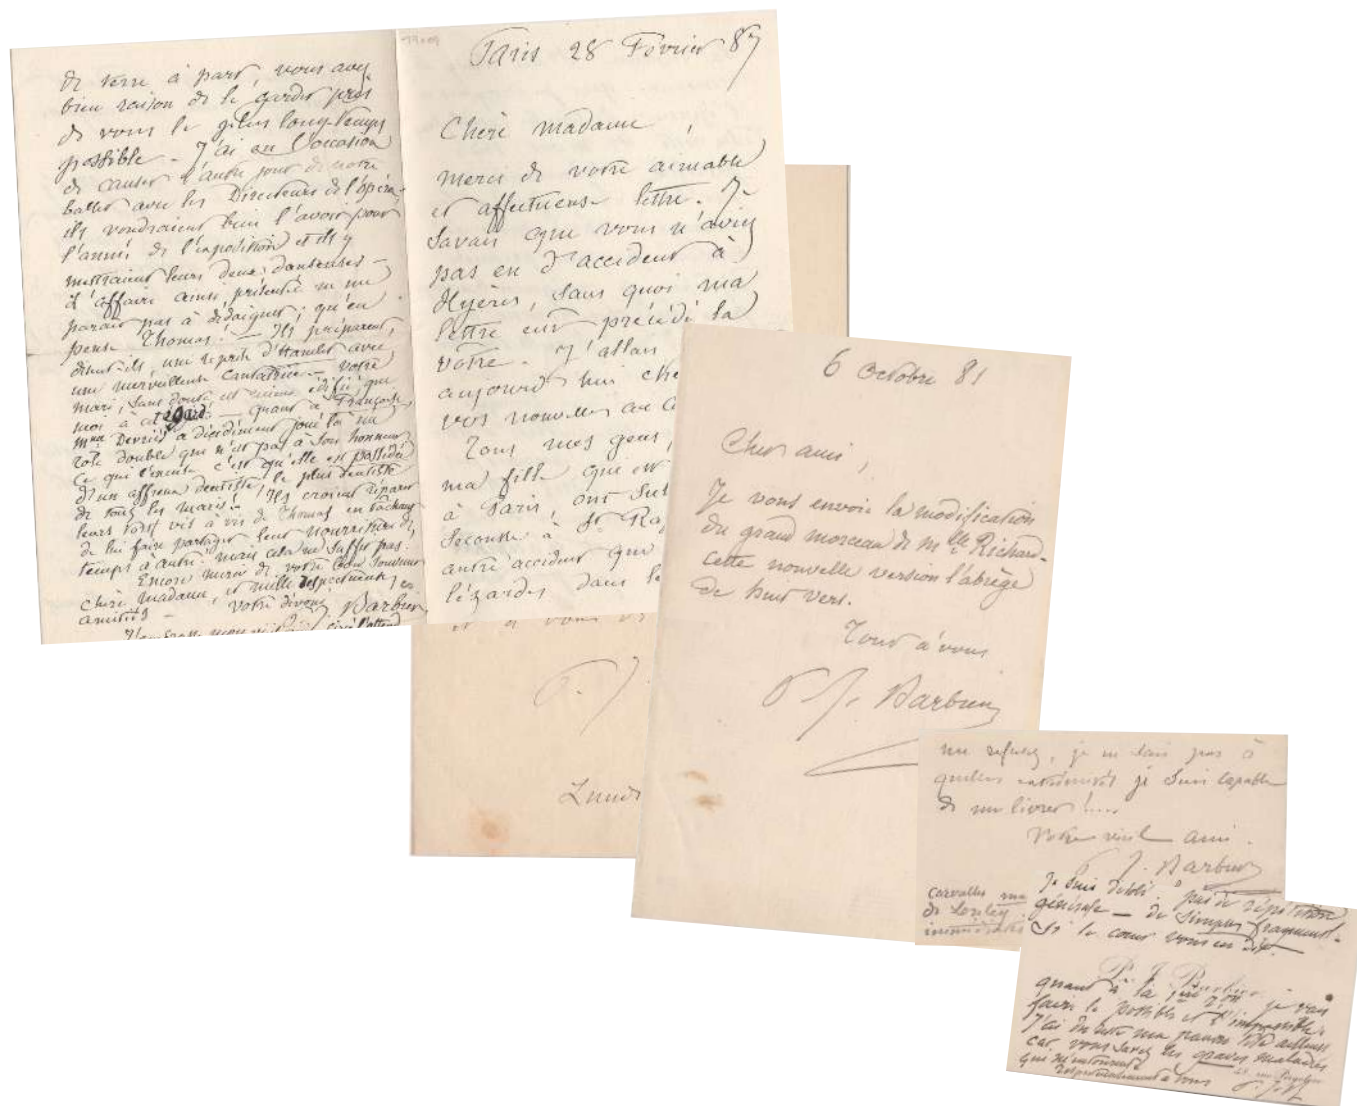 de terre à part, vous avez
bien raison de le garder près
de vous le plus longtemps
possible - J'ai eu l'occasion
de causer l'autre jour de notre
ballet avec les Directeurs de l'opéra,
ils voudraient bien l'avoir pour
l'année de l'exposition et ils y
mettraient leurs deux danseuses -
L'affaire ainsi présentée ne me
parait pas à dédaigner ; qu'en
pense Thomas ? - Ils préparent,
disent-ils, une reprise d'Hamlet avec
une merveilleuse cantatrice - votre
mari, sans doute est mieux édifié que
moi à cet égard - quant à Françoise,
Mme Devriès a décidément joué là un
rôle double qui n'est pas à son honneur
Ce qui l'excuse c'est qu'elle est possédée
d'un affreux dentiste, le plus dentiste
de tous les maris ! Ils croient réparer
leurs torts vis à vis de Thomas en tâchant
de lui faire partager leur nourriture de
temps à autre. mais cela ne suffit pas.
Encore merci de votre bon souvenir
chère madame, et mille respectueuses
amitiés -
votre dévoué Barbier
Paris 28 Février 87
Chère madame,
merci de votre aimable
et affectueuse lettre. Je
savais que vous n'aviez
pas eu d'accident à
Hyères, sans quoi ma
lettre eut précédé la
vôtre. J'allais
aujourd'hui che
vos nouvelles
Tous mes gens,
ma fille qui est
à Paris, ont
secousse à St Ra
autre accident que
lézardes dans le
et à vous
P. J.
Lundi
6 Octobre 81
Cher ami,
Je vous envoie la modification
du grand morceau de Mlle Richard -
cette nouvelle version l'abrège
de huit vers.
Tout à vous
P J. Barbier
me refusez, je ne sais pas à
quelles extrémités je suis capable
de me livrer !....
Votre vieil ami.
P J. Barbier
Je suis pas de répétition
générale - de simples fragments -
Si le cœur vous en dit.
P. J. Barbier
quant à la je vais
faire le possible et l'impossible.
J'ai du reste ma pauvre tête ailleurs
car vous savez les graves maladies
qui m'entourent
Respectueusement à vous